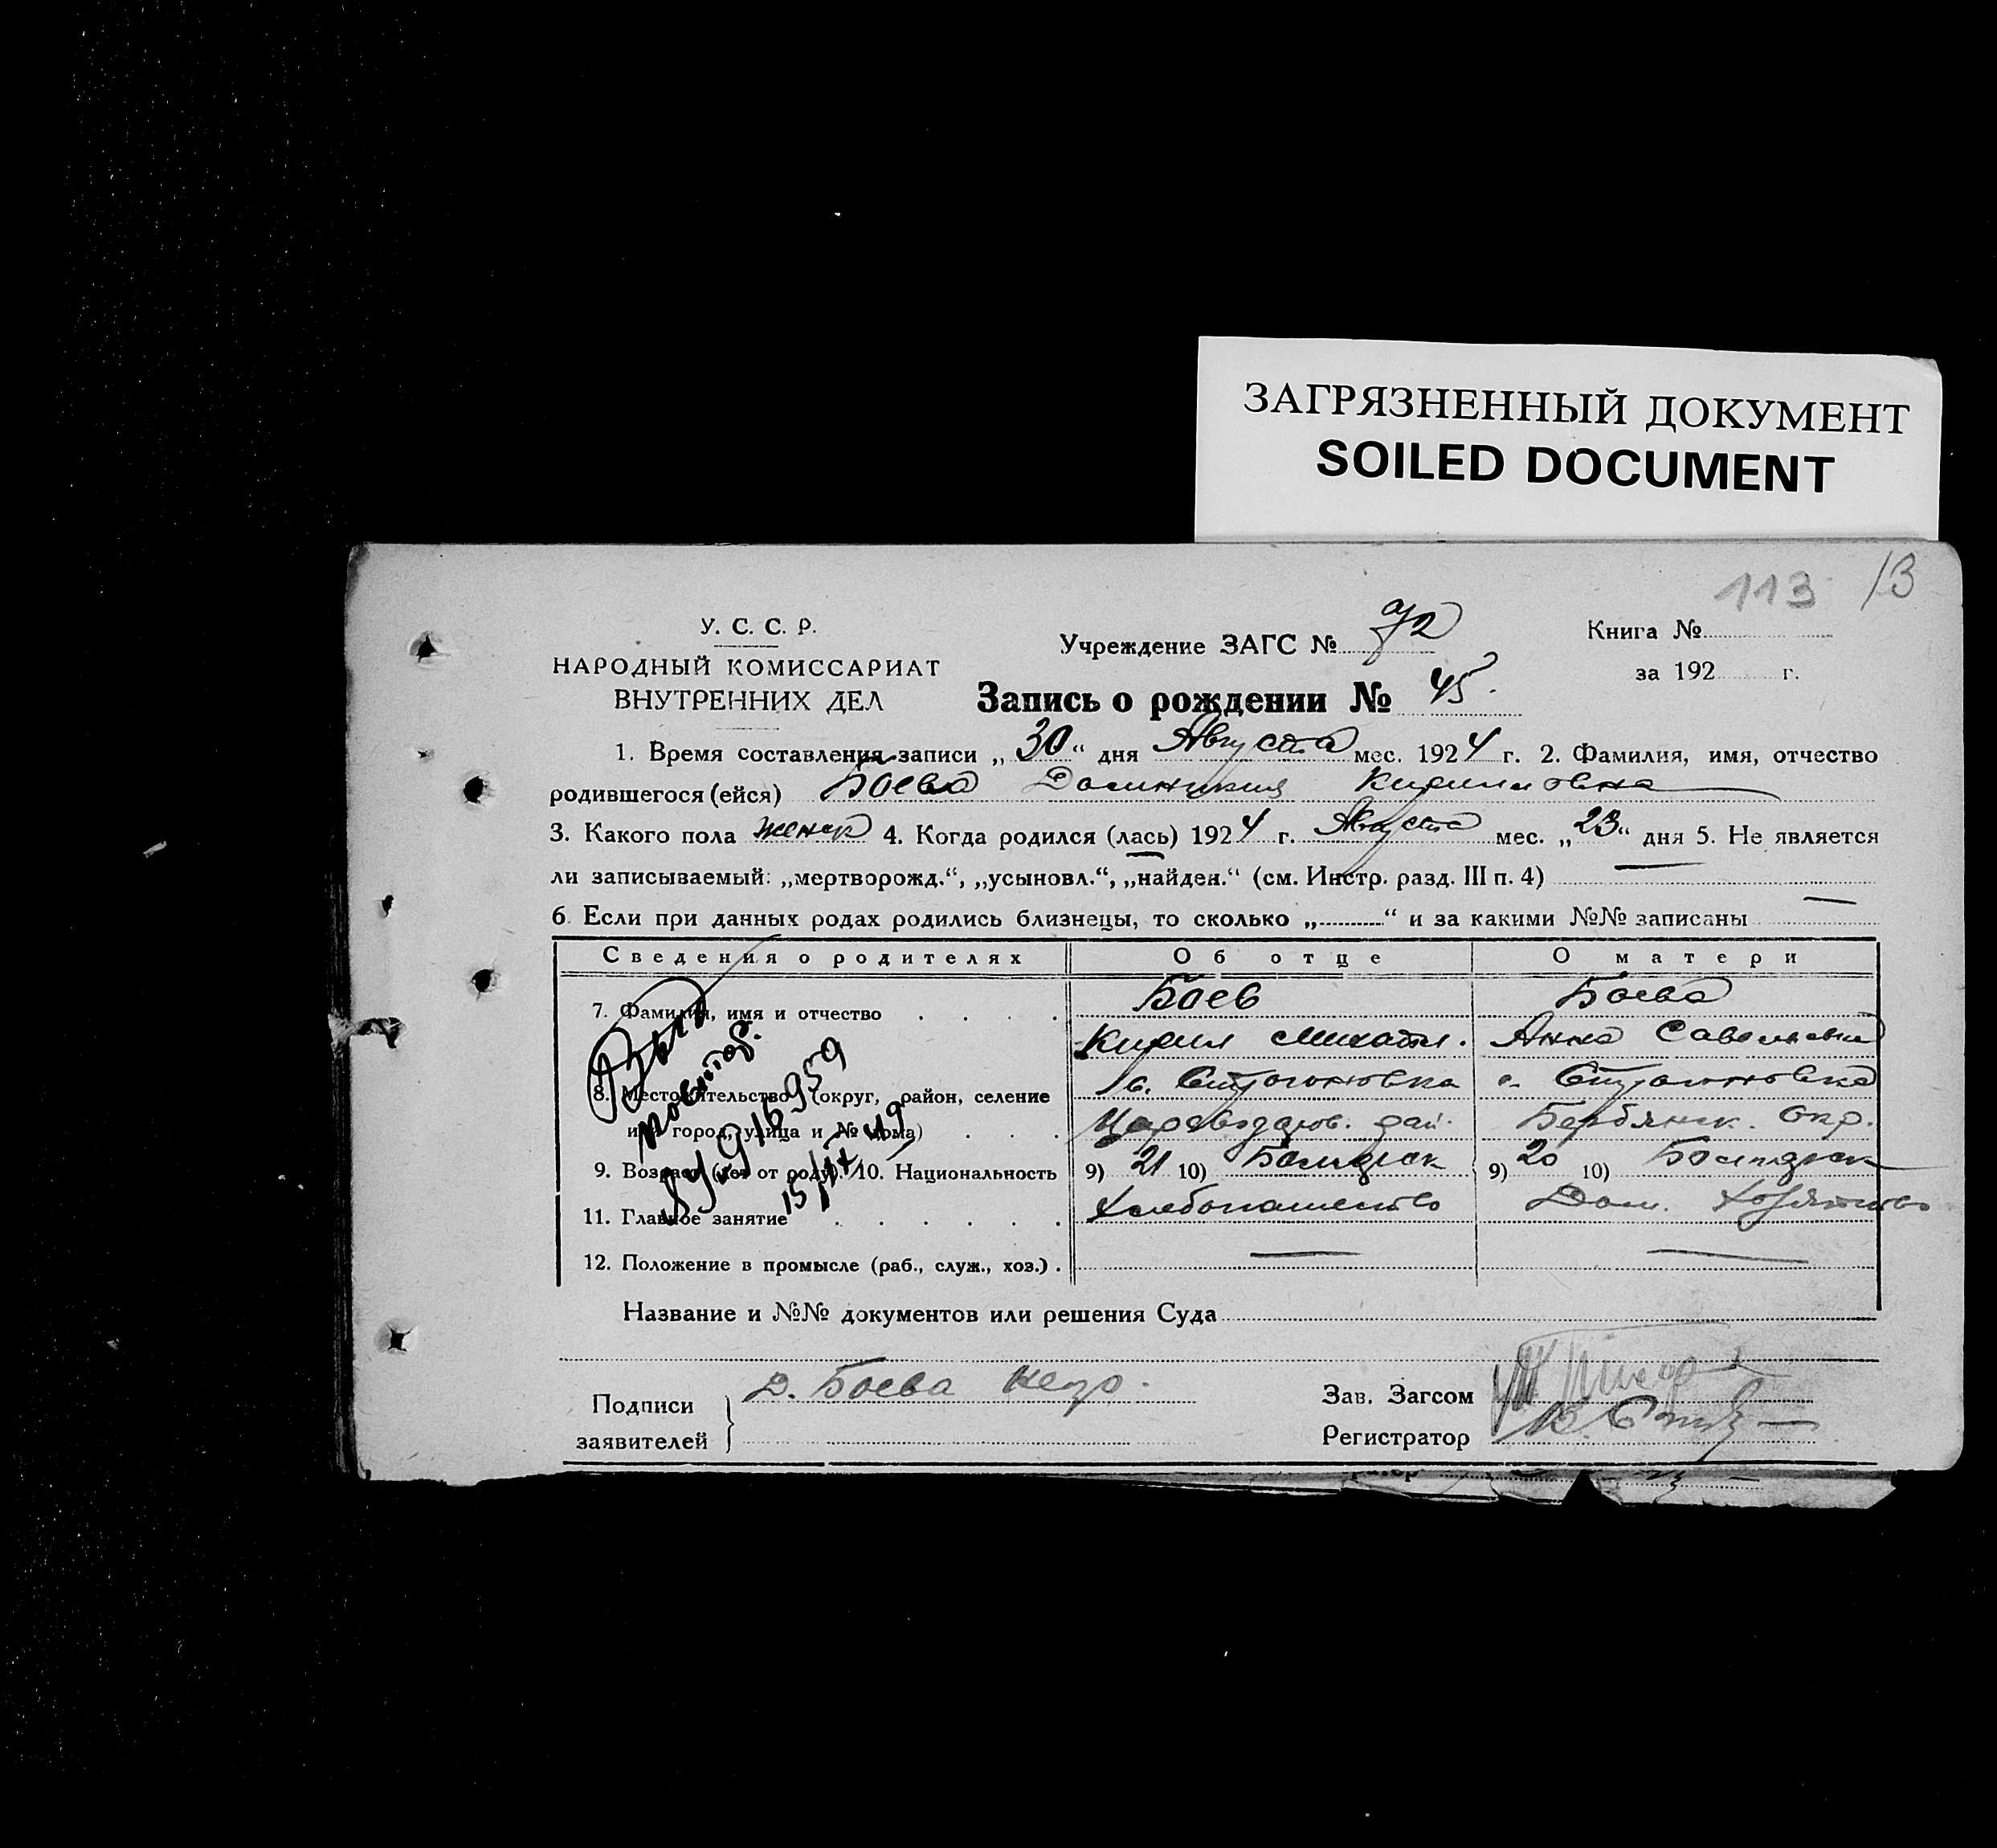 ЗАГРЯЗНЕННЫЙ ДОКУМЕНТ
SOILED DOCUMENT
113 13
У. С. С. Р.
НАРОДНЫЙ КОМИССАРИАТ
ВНУТРЕННИХ ДЕЛ
Учреждение ЗАГС №
Книга №
за 192 г.
Запись о рождении № 45
1. Время составления записи „30“ дня Августа мес. 1924 г. 2. Фамилия, имя, отчество
родившегося (ейся) Боева Домникия Кирилловна
3. Какого пола женск 4. Когда родился (лась) 1924 г. Августа мес. „23“ дня 5. Не является
ли записываемый: „мертворожд.“, „усыновл.“, „найден.“ (см. Инстр. разд. III п. 4) —
6. Если при данных родах родились близнецы, то сколько „ “ и за какими №№ записаны —
Сведения о родителях Об отце О матери
7. Фамилия, имя и отчество Боев Боева
Кирил Михайл. Анна Савельевна
8. Местожительство (округ, район, селение с. Строгоновка с. Строгоновка
или город, улица и № дома) Цареводаров. рай. Бердянск. Окр.
9. Возраст (лет от роду). 10. Национальность 9) 21 10) Болгарск 9) 20 10) Болгарск
11. Главное занятие Хлебопашество Дом. Хозяйство
12. Положение в промысле (раб., служ., хоз.) — —
Выд
повтор.
916959
15/IX 49
Название и №№ документов или решения Суда
Подписи
заявителей
Д. Боева негр.
Зав. Загсом
Регистратор